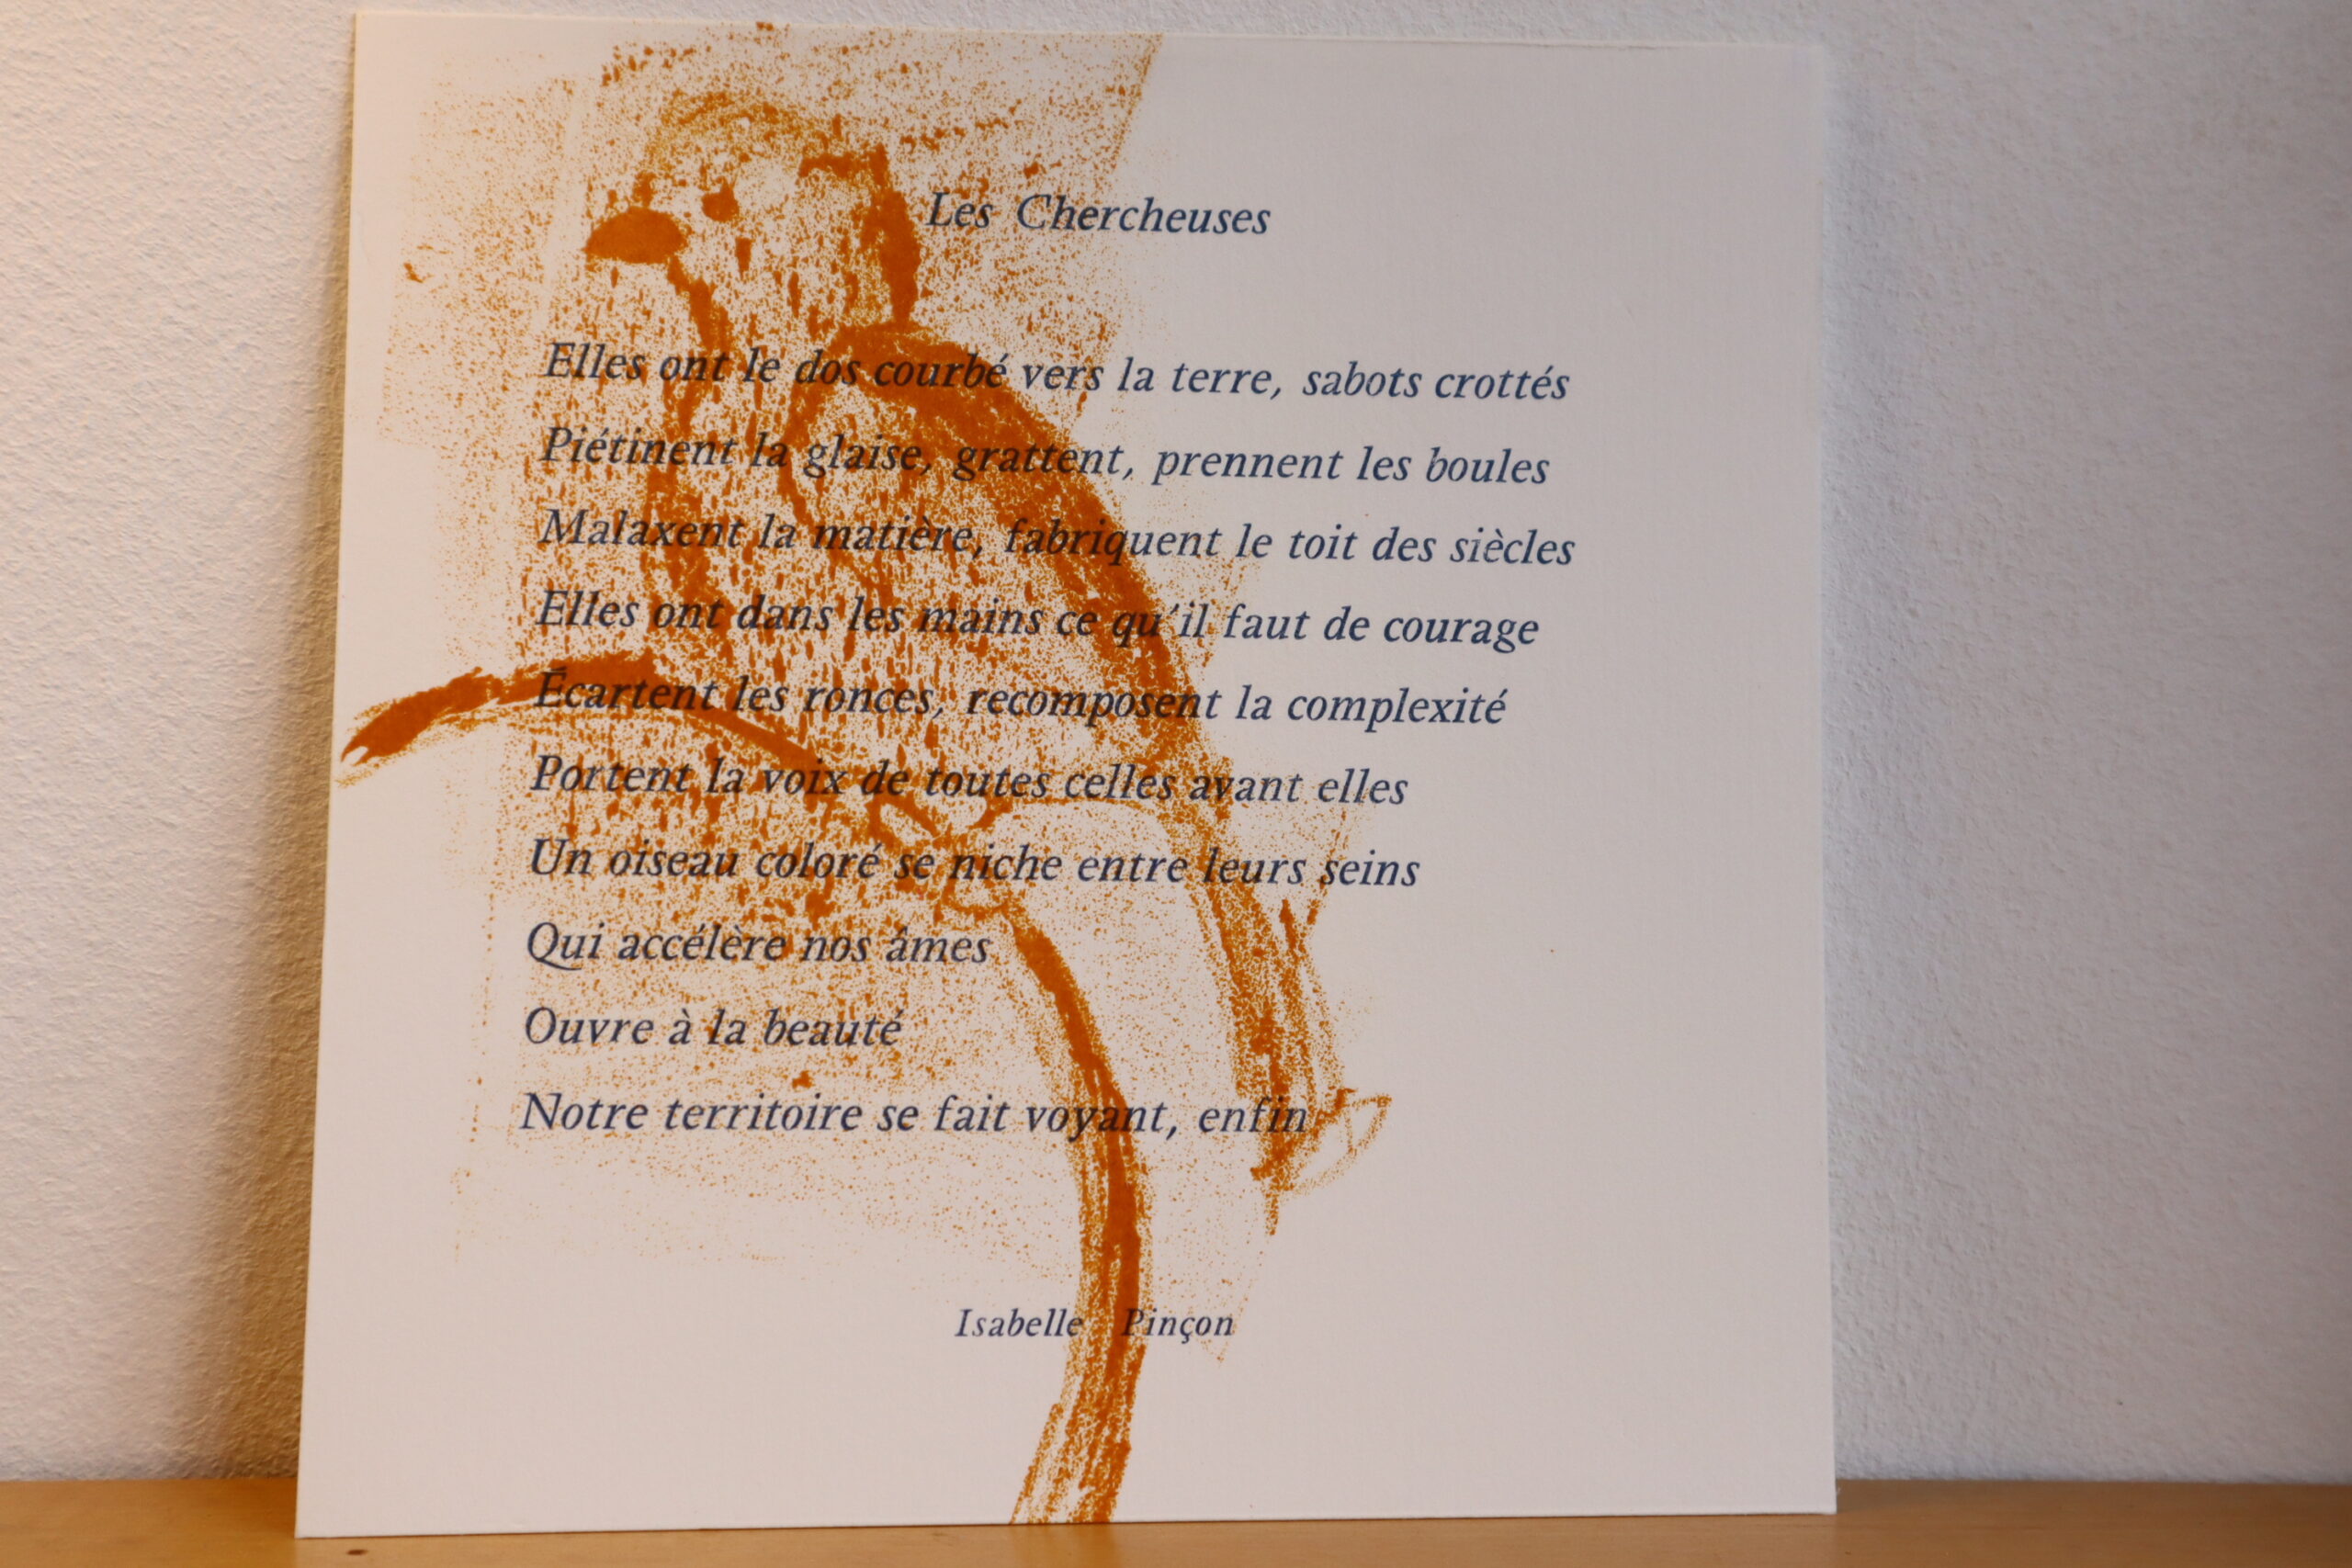 Les Chercheuses
Elles ont le dos courbé vers la terre, sabots crottés
Piétinent la glaise, grattent, prennent les boules
Malaxent la matière, fabriquent le toit des siècles
Elles ont dans les mains ce qu'il faut de courage
Écartent les ronces, recomposent la complexité
Portent la voix de toutes celles avant elles
Un oiseau coloré se niche entre leurs seins
Qui accélère nos âmes
Ouvre à la beauté
Notre territoire se fait voyant, enfin
Isabelle Pinçon